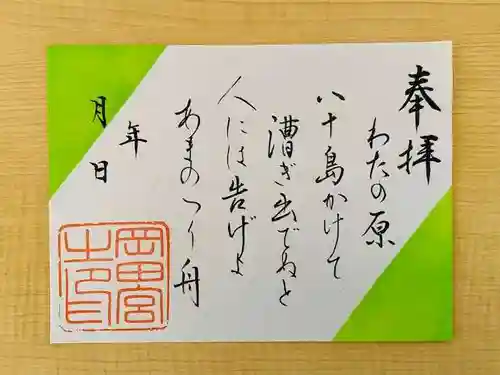 奉拝
わたの原
八十島かけて
漕ぎ出でぬと
人には告げよ
あまのつり舟
年
月 日
岡田宮
之印